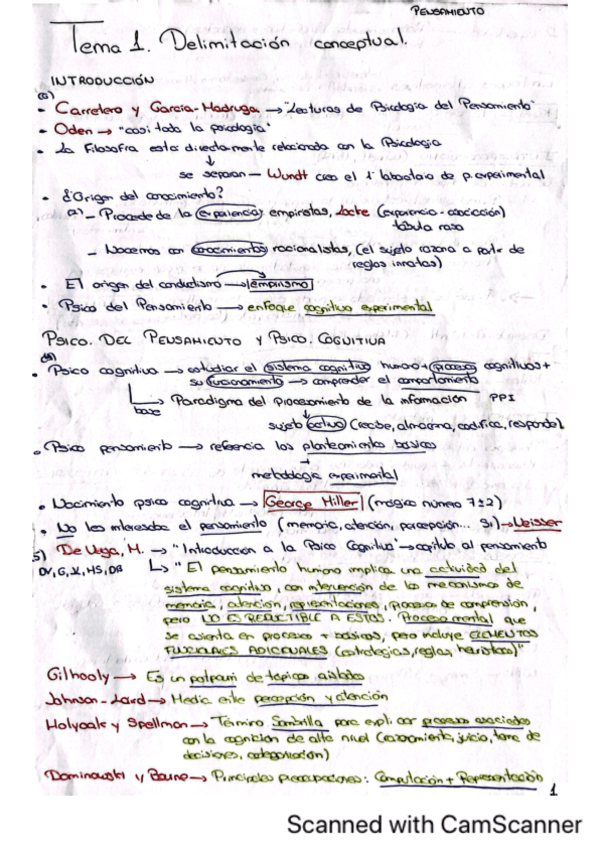 PENSAMIENTO
Tema 1. Delimitación conceptual.
INTRODUCCIÓN
- Carretero y García-Madruga → "Lecturas de Psicología del Pensamiento"
- Oden → "casi toda la psicología"
• La Filosofía esta directamente relacionada con la Psicología
↓
se separan — Wundt crea el 1º laboratorio de p. experimental
• ¿Origen del conocimiento?
- Procede de la experiencia, empiristas, Locke (experiencia-asociación)
tabula rasa
- Nacemos con conocimientos racionalistas, (el sujeto razona a partir de
reglas innatas)
• El origen del conductismo → empirismo
• Psico del Pensamiento → enfoque cognitivo experimental
PSICO. DEL PENSAMIENTO Y PSICO. COGNITIVA
• Psico cognitiva → estudiar el sistema cognitivo humano + procesos cognitivos +
su funcionamiento → comprender el comportamiento
base → Paradigma del Procesamiento de la información PPI
↓
sujeto activo (recibe, almacena, codifica, responde)
• Psico pensamiento → referencia los planteamientos basicos
metodología experimental
• Nacimiento psico cognitiva → George Miller (mágico número 7±2)
• No les interesaba el pensamiento (memoria, atención, percepción... SI) → Neisser
5) De Vega, M. → "Introduccion a la Psico Cognitiva" → capítulo al pensamiento
↳ "El pensamiento humano implica una actividad del
sistema cognitivo, con intervención de los mecanismos de
memoria, atención, representaciones, procesos de comprensión,
pero NO ES REDUCTIBLE A ESTOS. Proceso mental que
se asienta en procesos + básicos, pero incluye ELEMENTOS
FUNCIONALES ADICIONALES (estrategias, reglas, heurísticos)"
Gilhooly → Es un potpurri de tópicos aislados
Johnson-Laird → Media entre percepción y atención
Holyoak y Spellman → Término Sombrilla para explicar procesos asociados
con la cognición de alto nivel (razonamiento, juicio, toma de
decisiones, categorización)
Dominowski y Bourne → Principales preocupaciones: Computación + Representación
1
Scanned with CamScanner